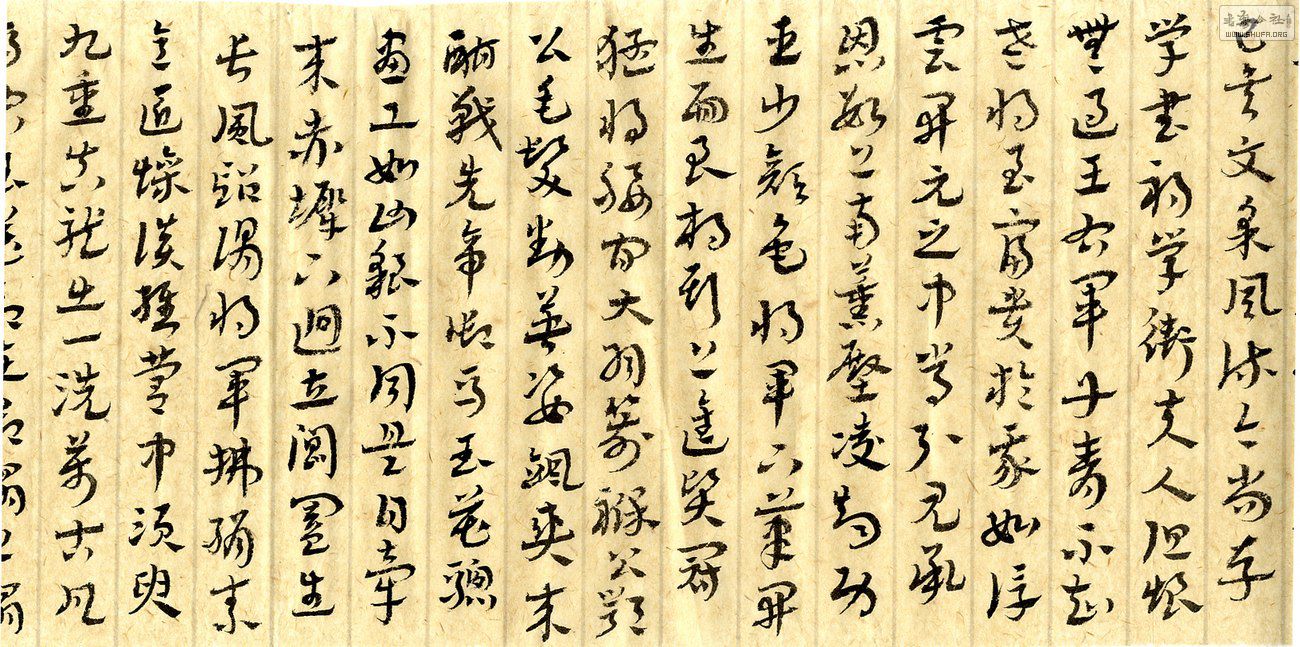 已矣文采風流今尚存
学書初学衛夫人但恨
無過王右軍丹青不知
老將至富貴於我如浮
雲開元之中常引見承
恩數上南薰殿凌烟功
臣少顏色將軍下筆開
生面良相頭上進賢冠
猛將腰間大羽箭褒公鄂
公毛髮動英姿颯爽來
酣戰先帝御馬玉花驄
畫工如山貌不同是日牽
來赤墀下迥立閶闔生
長風詔謂將軍拂絹素
意匠慘淡經營中須臾
九重真龍出一洗萬古凡
WWW.SHUFA.ORG